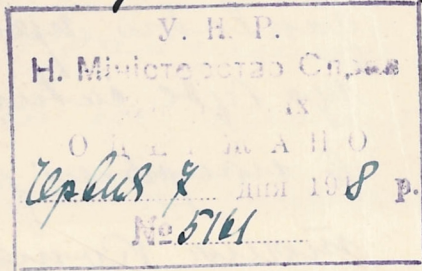 У. Н. Р.
Н. Міністерство Справ
их
ОДЕРЖАНО
Червня 7 дня 1918 р.
№ 5161